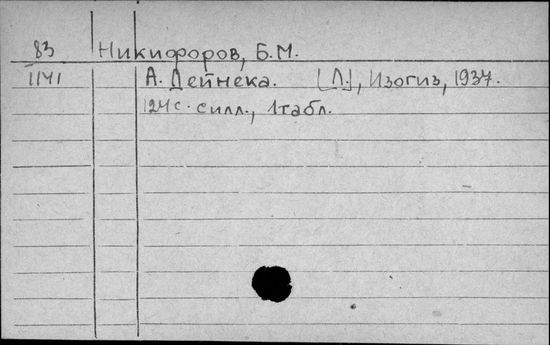 83 Никифоров, Б.М.
1141 А. Дейнека. [Л.], Изогиз, 1937.
124 с. силл., 1табл.